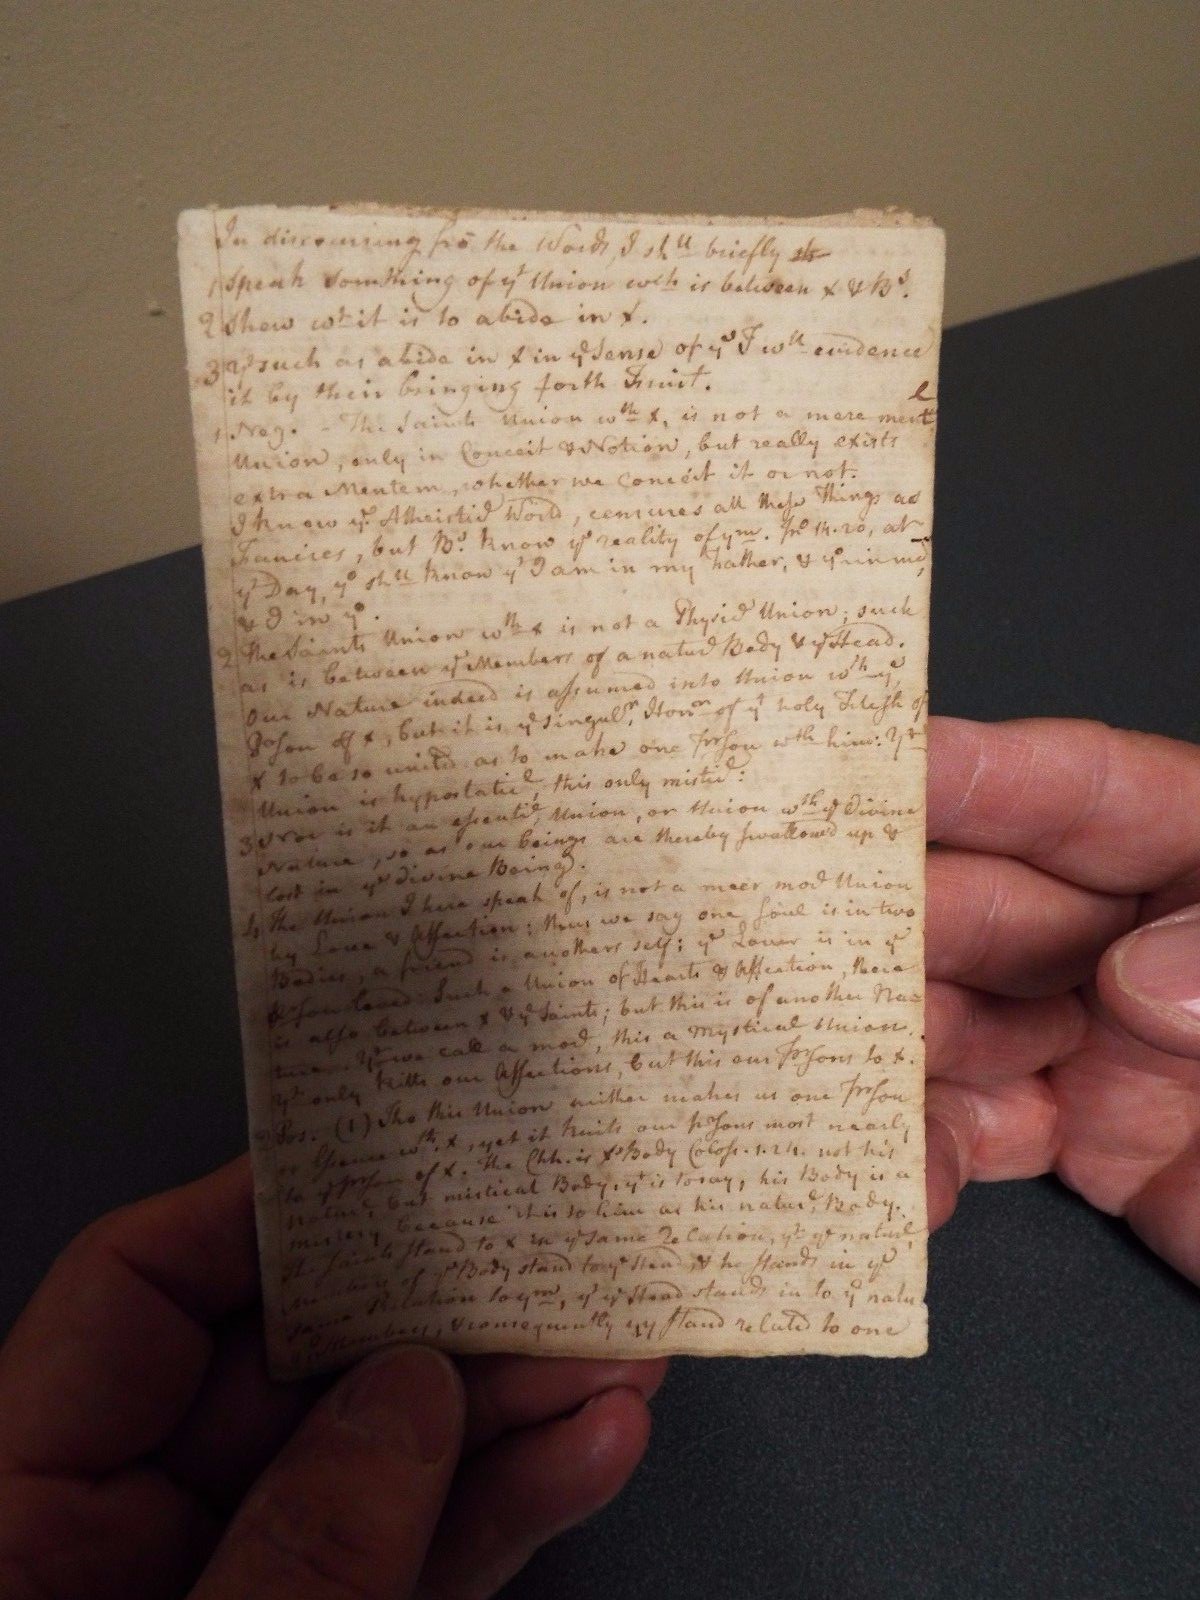 In discoursing frõ the Words, I sh.ll briefly
1 Speak something of yt Union wch is between X & Bs.
2 Shew wt it is to abide in X.
3 yt such as abide in X in ye Sense of ys I wll evidence
it by their bringing forth Fruit.
1 Neg. - The Saints Union wth X, is not a mere mentl
Union, only in Conceit & Notion, but really exists
extra Mentem, whether we conceit it or not.
I know ye Atheisticl World, censures all these Things as
Fancies, but Bs. know ye reality of ym. Jno 14.20, at
yt Day, ye shll know yt I am in my Father, & ye in me,
& I in yo.
2 The Saints Union wth X is not a Physicl Union; such
as is between ye Members of a naturl Body & ye Head.
Our Nature indeed is assumed into Union wth ye
Pson of X, but it is ye singulr Honr of yt holy Flesh of
X to be so united as to make one Prson wth him: Yt
Union is hypostaticl, this only misticl:
3 Nor is it an essentil Union, or Union wth ye Divine
Nature, so as our beings are thereby swallowed up &
lost in ye divine Being.
4 The Union I here speak of, is not a meer morl Union
by Love & Affection; thus we say one Soul is in two
Bodies, a friend is anothers self; ye Lover is in ye
Pson loved. Such a Union of Hearts & Affection, there
is also between X & ye Saints; but this is of another Na=
ture. Yt we call a morl, this a Mystical Union.
Yt only knitts our Affections, but this our Prsons to X.
Pos. (1) Tho this Union neither makes us one Prson
or Essence wth X, yet it knits our prsons most nearly
to ye prson of X. The Chh. is Xs Body Coloss. 1.24. not his
naturl, but mistical Body, yt is to say, his Body is a
mistery because it is to him as his naturl Body.
The Saints stand to X in ye same Relation, yt ye naturl
members of ye Body stand to ye Head, & he stands in ye
same Relation to ym, yt ye Head stands in to ye natu
Members, & consequently yy stand related to one